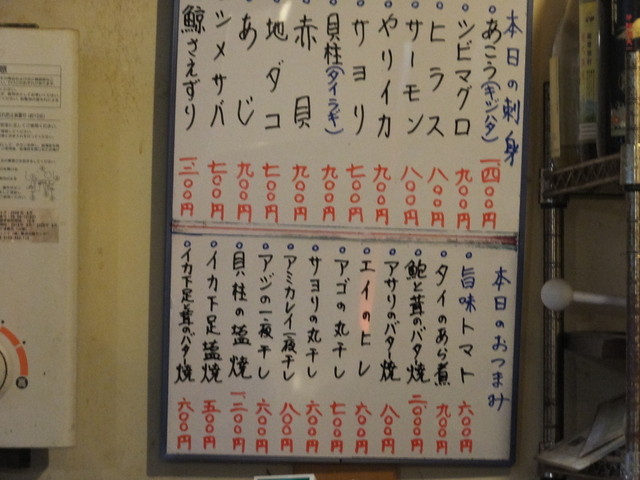 本日の刺身
あこう(キジハタ) 一四〇〇円
シビマグロ 九〇〇円
ヒラス 八〇〇円
サーモン 八〇〇円
やりイカ 九〇〇円
サヨリ 七〇〇円
貝柱(タイラギ) 九〇〇円
赤貝 九〇〇円
地ダコ 七〇〇円
あじ 九〇〇円
シメサバ 七〇〇円
鯨さえずり 一三〇〇円
本日のおつまみ
旨味トマト 六〇〇円
タイのあら煮 九〇〇円
鮑と茸のバター焼 二〇〇〇円
アサリのバター焼 八〇〇円
エイのヒレ 六〇〇円
アゴの丸干し 七〇〇円
サヨリの丸干し 六〇〇円
アミカレイ一夜干し 八〇〇円
アジの一夜干し 六〇〇円
貝柱の塩焼 一二〇〇円
イカ下足塩焼 五〇〇円
イカ下足と茸のバター焼 六〇〇円